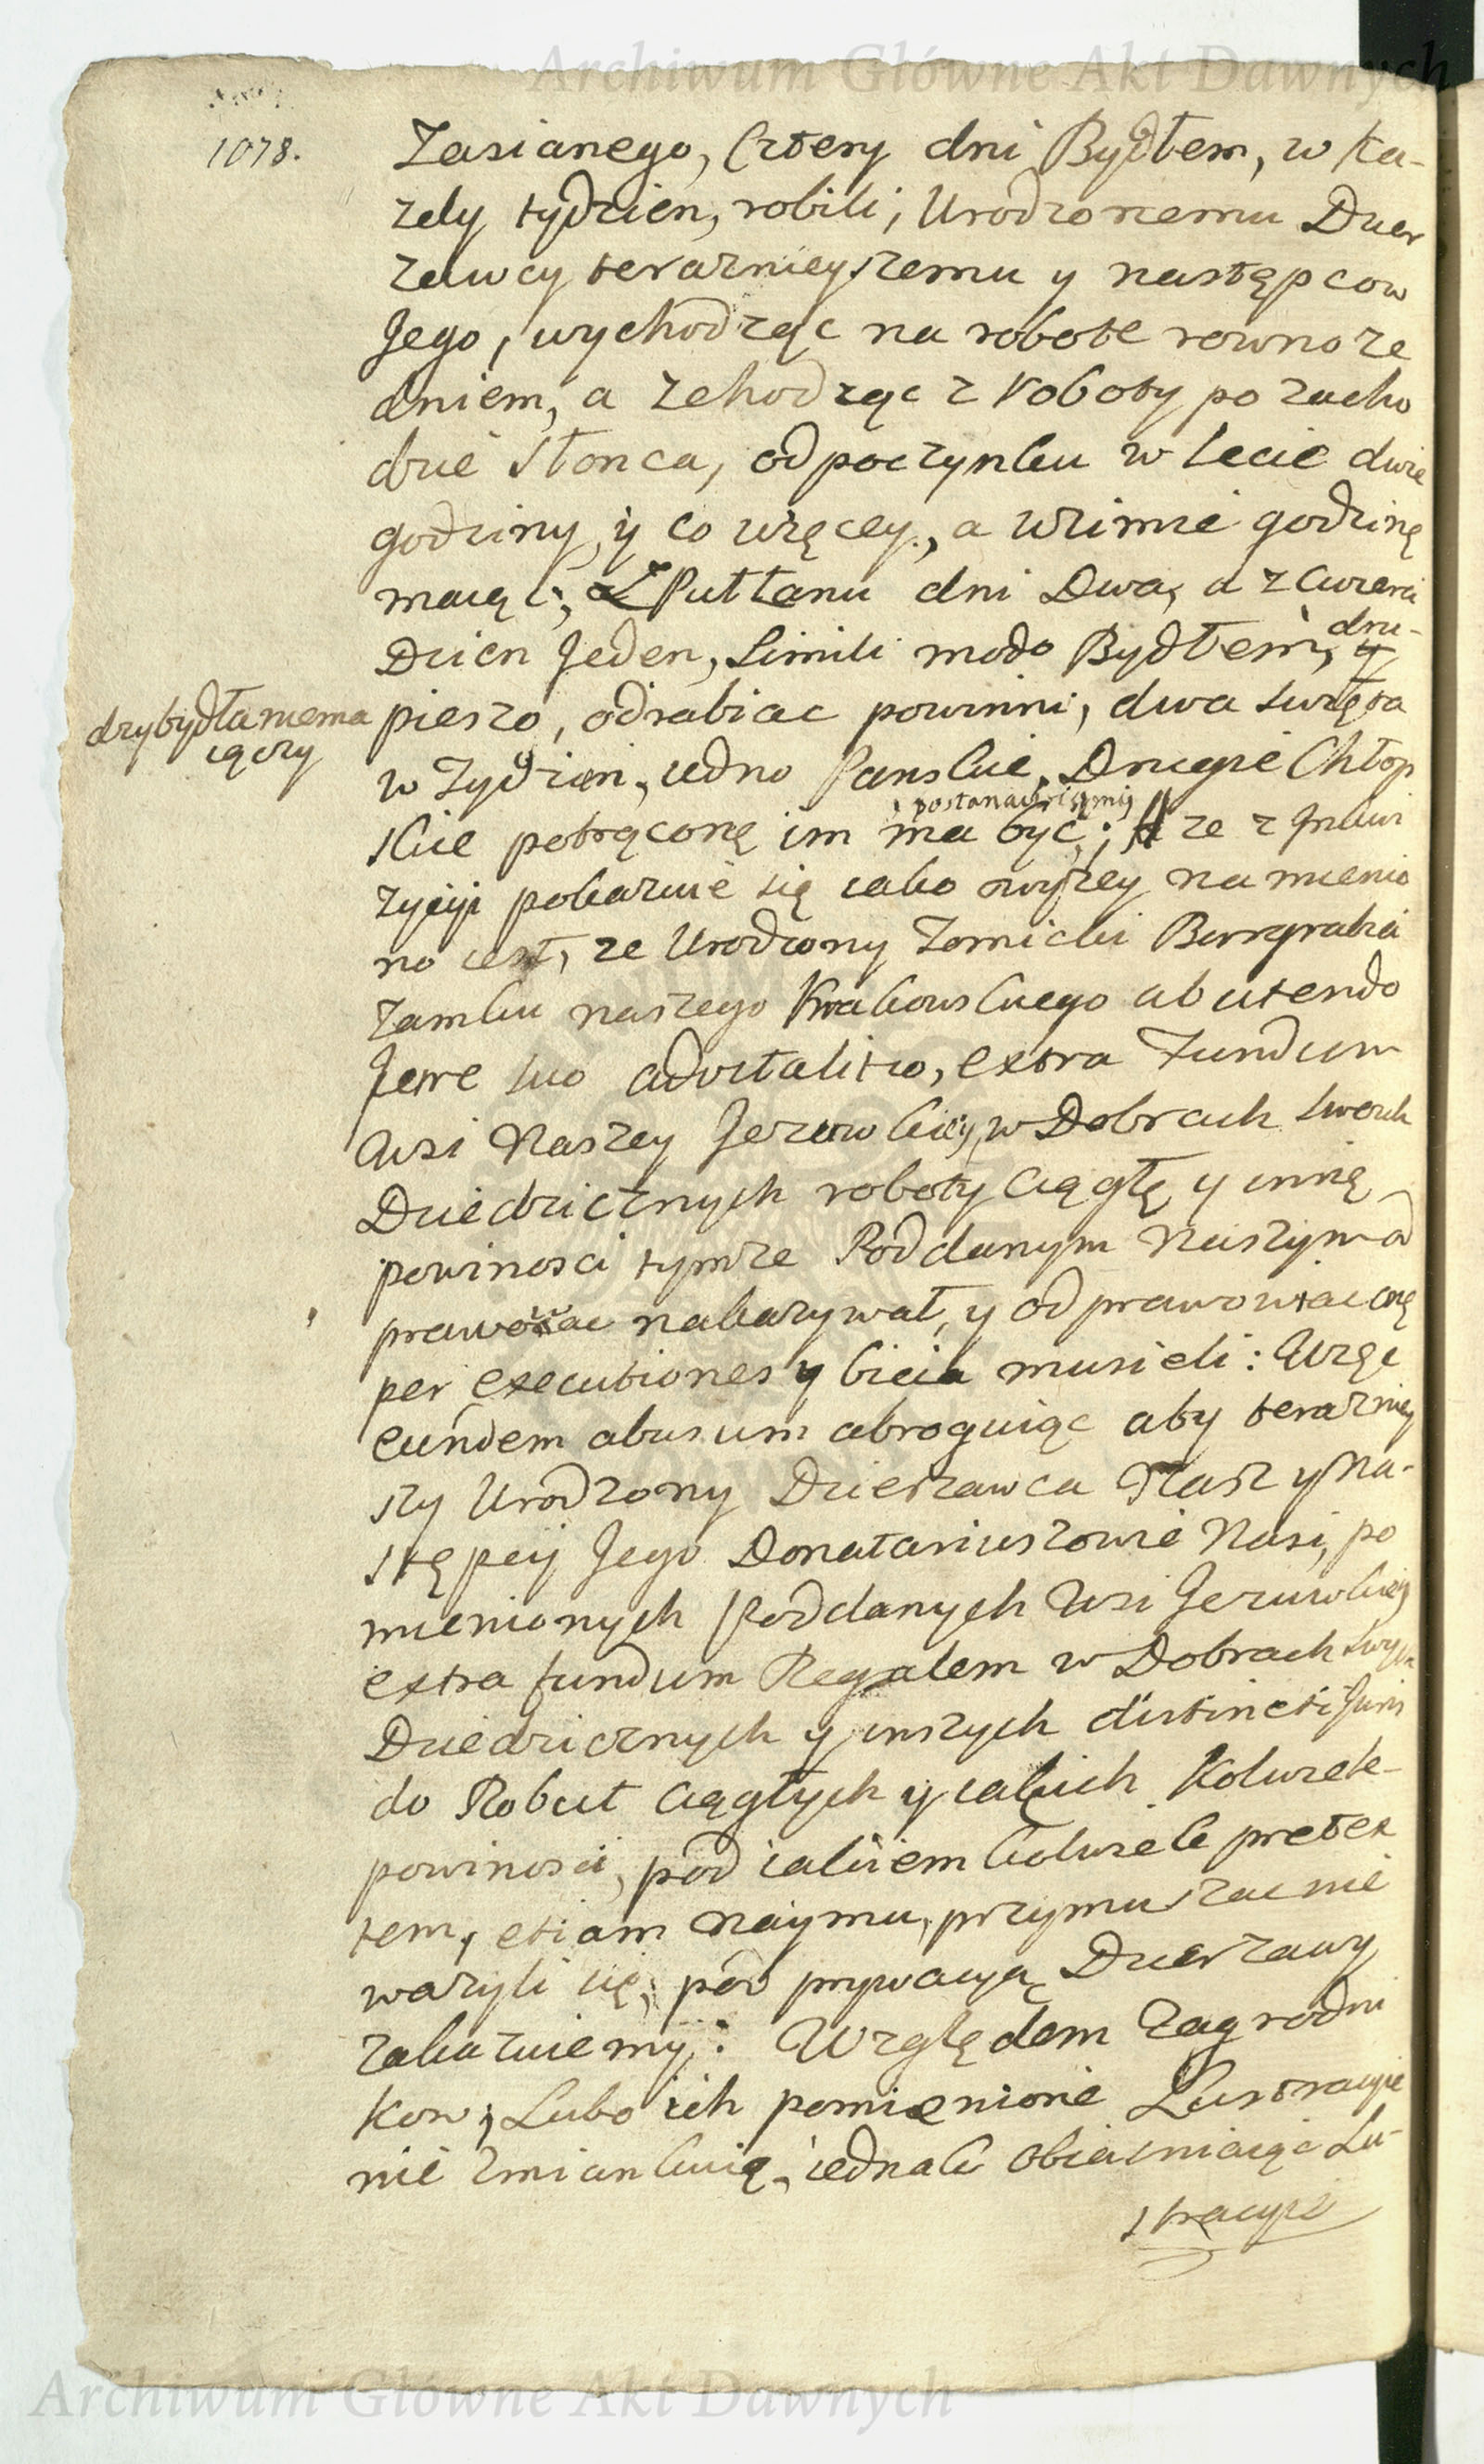 Archiwum Główne Akt Dawnych
1078.
Zasianego, Cztery dni Bydłem, w Ka-
zdy tydzien, robili, Urodzonemu Dzier
zawcy teraznieyszemu y następcow
Jego, wychodząc na robote rowno ze
dniem, a zchodząc z Roboty po zacho
dzie Słonca, odpoczynku w Lecie dwie
godziny, y co więcey, a wzimie godzinę
maiąc; Z Pułłanu dni Dwa, a z Cwierci
Dzien Jeden, Simili modo Bydłem, dru-
drzy bydła niema
iący
pieszo, odrabiac powinni, dwa swięta
w Tydzien, iedno Panskie, Drugie Chłop
skie potrącone im ma być; postanawiamy ze z Inkwi
zycyi pokazuie się iako wyzey namienio
no iest, ze Urodzony Zomicki Burgrabia
Zamku naszego Krakowskiego abutendo
Jure suo advitalitio, extra Fundum
Wsi Naszey Jerzowkiey, w Dobrach Swoich
Dziedzicznych roboty Ciągłę y innę
powinosci tymze Poddanym Naszym od
prawowac nakazywał, y odprawowiac onę
per executiones y bicia musieli: Więc
eundem abusum abroguiąc aby teraznie
szy Urodzony Dzierzawca Nasz y Na-
stępcy Jego Donatariuszowie Nasi, po
mienionych Poddanych Wsi Jerzowkiey
extra fundum Regalem w Dobrach swych
Dziedzicznych y inszych distincti Juris
do Robut Ciągłych y iakich Kolwiek-
powinosci, pod iakiem kolwiek pretex
tem, etiam Naymu, przymuszac nie
wazyli się, pod prywacyą Dzierzawy
zakazuiemy: Względem Zagrodni
kow, Lubo ich pomienione Lustracyie
nie zmiankuią, iednak obiasniaiąc Lu-
stracyie
Archiwum Główne Akt Dawnych